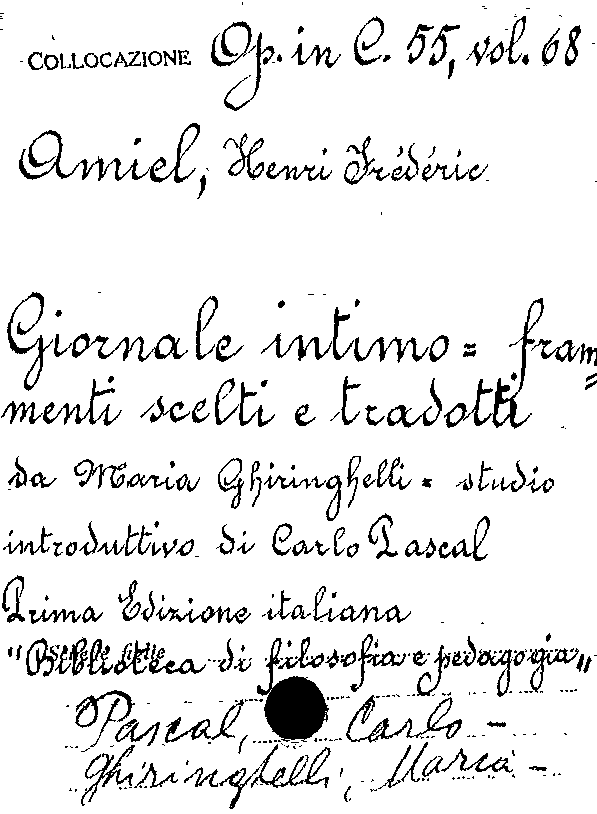 COLLOCAZIONE Op. in C. 55, vol. 68
Amiel, Henri Frédéric
Giornale intimo = fram=
menti scelti e tradotti
da Maria Ghiringhelli = studio
introduttivo di Carlo Pascal
Prima Edizione italiana
"Biblioteca di filosofia e pedagogia"
Pascal, Carlo -
Ghiringhelli, Maria -